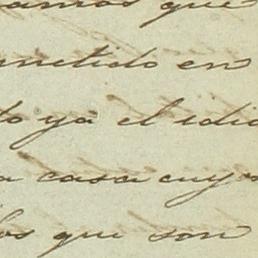 amos que
metido en
do ya el idio
a casa cuyo
los que son